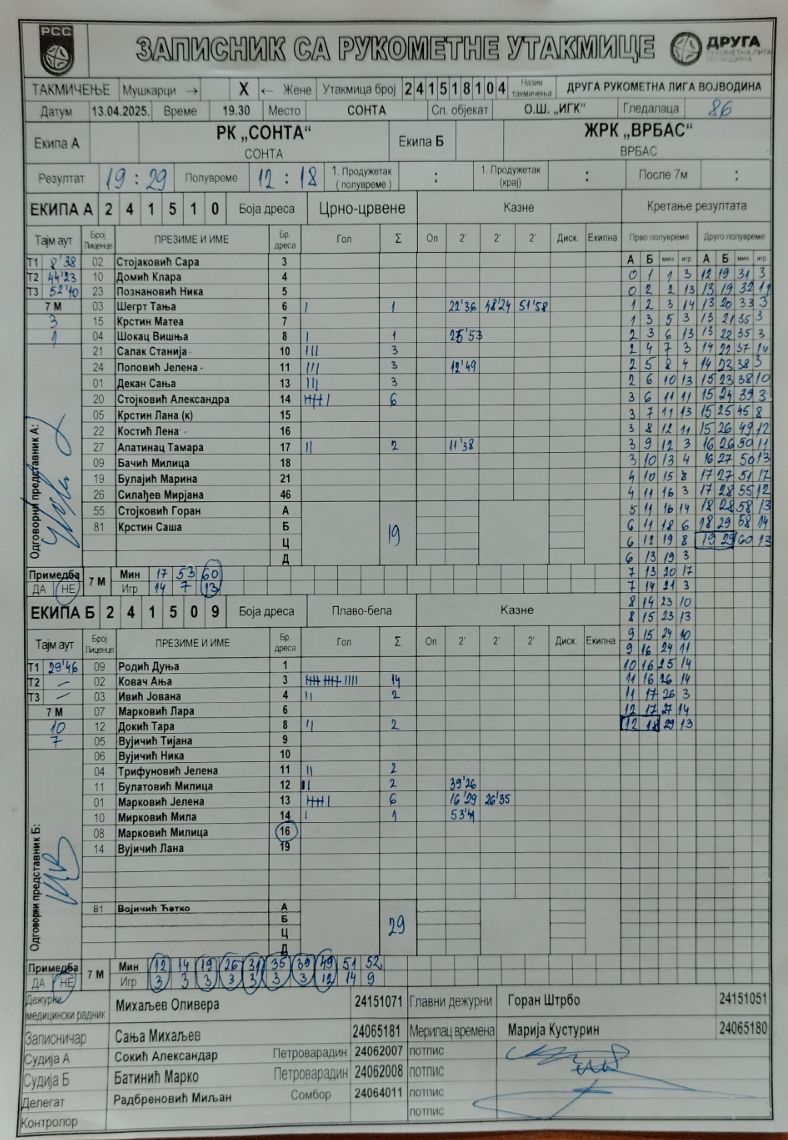 РСС
ЗАПИСНИК СА РУКОМЕТНЕ УТАКМИЦЕ
ДРУГА
РУКОМЕТНА ЛИГА
ВОЈВОДИНА
ТАКМИЧЕЊЕ Мушкарци → X ← Жене Утакмица број 2 4 1 5 1 8 1 0 4 Назив такмичења ДРУГА РУКОМЕТНА ЛИГА ВОЈВОДИНА
Датум 13.04.2025. Време 19.30 Место СОНТА Сп. објекат О.Ш. „ИГК“ Гледалаца 86
Екипа А РК „СОНТА“ Екипа Б ЖРК „ВРБАС“
СОНТА ВРБАС
Резултат 19 : 29 Полувреме 12 : 18 1. Продужетак (полувреме) : 1. Продужетак (крај) : После 7м :
ЕКИПА А 2 4 1 5 1 0 Боја дреса Црно-црвене Казне Кретање резултата
Тајм аут Број Лиценце ПРЕЗИМЕ И ИМЕ Бр. дреса Гол Σ Оп 2' 2' 2' Диск. Екипна Прво полувреме Друго полувреме
А Б мин игр А Б мин игр
Т1 8'38 02 Стојаковић Сара 3 0 1 1 3 12 19 31 3
Т2 44'23 10 Домић Клара 4 0 2 2 13 13 19 32 11
Т3 52'40 23 Познановић Ника 5 1 2 3 14 13 20 33 3
7 М 03 Шегрт Тања 6 I 1 22'36 48'24 51'58 1 3 5 3 13 21 35 3
3 15 Крстин Матеа 7 2 3 6 13 13 22 35 3
1 04 Шокац Вишња 8 I 1 25'53 2 4 7 3 14 22 37 14
21 Салак Станија 10 III 3 2 5 8 4 14 23 38 3
24 Поповић Јелена 11 III 3 12'49 2 6 10 13 15 23 38 10
01 Декан Сања 13 III 3 3 6 11 11 15 24 39 3
20 Стојковић Александра 14 IIII I 6 3 7 11 13 15 25 45 8
05 Крстин Лана (к) 15 3 8 12 11 15 26 49 12
22 Костић Лена 16 3 9 12 3 16 26 50 11
27 Апатинац Тамара 17 II 2 11'38 3 10 13 4 16 27 50 13
09 Бачић Милица 18 4 10 15 8 17 27 51 17
19 Булајић Марина 21 4 11 16 3 17 28 55 12
26 Силађев Мирјана 46 5 11 16 14 18 28 58 13
55 Стојковић Горан А 6 11 18 6 18 29 58 14
81 Крстин Саша Б 19 6 12 19 8 19 29 60 13
Ц 6 13 19 3
Д 7 13 20 17
Одговорни представник А:
Примедба ДА НЕ 7 М Мин 17 53 60
Игр 14 7 13
7 14 21 3
8 14 23 10
ЕКИПА Б 2 4 1 5 0 9 Боја дреса Плаво-бела Казне 8 15 23 13
9 15 24 10
Тајм аут Број Лиценце ПРЕЗИМЕ И ИМЕ Бр. дреса Гол Σ Оп 2' 2' 2' Диск. Екипна 9 16 24 11
Т1 29'46 09 Родић Дуња 1 10 16 25 14
Т2 – 02 Ковач Ања 3 IIII IIII IIII 14 11 16 26 14
Т3 – 03 Ивић Јована 4 II 2 11 17 26 3
7 М 07 Марковић Лара 6 12 17 27 14
10 12 Докић Тара 8 II 2 12 18 29 13
7 05 Вујичић Тијана 9
06 Вујичић Ника 10
04 Трифуновић Јелена 11 II 2
11 Булатовић Милица 12 II 2 39'26
01 Марковић Јелена 13 IIII I 6 16'29 26'35
10 Мирковић Мила 14 I 1 53'41
08 Марковић Милица 16
14 Вујичић Лана 19
81 Војичић Ћетко А
Б 29
Ц
Д
Одговорни представник Б:
Примедба ДА НЕ 7 М Мин 12 14 19 26 31 35 39 49 51 52
Игр 3 3 3 3 3 3 3 12 14 9
Дежурни медицински радник Михаљев Оливера 24151071 Главни дежурни Горан Штрбо 24151051
Записничар Сања Михаљев 24065181 Мерилац времена Марија Кустурин 24065180
Судија А Сокић Александар Петроварадин 24062007 потпис
Судија Б Батинић Марко Петроварадин 24062008 потпис
Делегат Радбреновић Миљан Сомбор 24064011 потпис
Контролор потпис